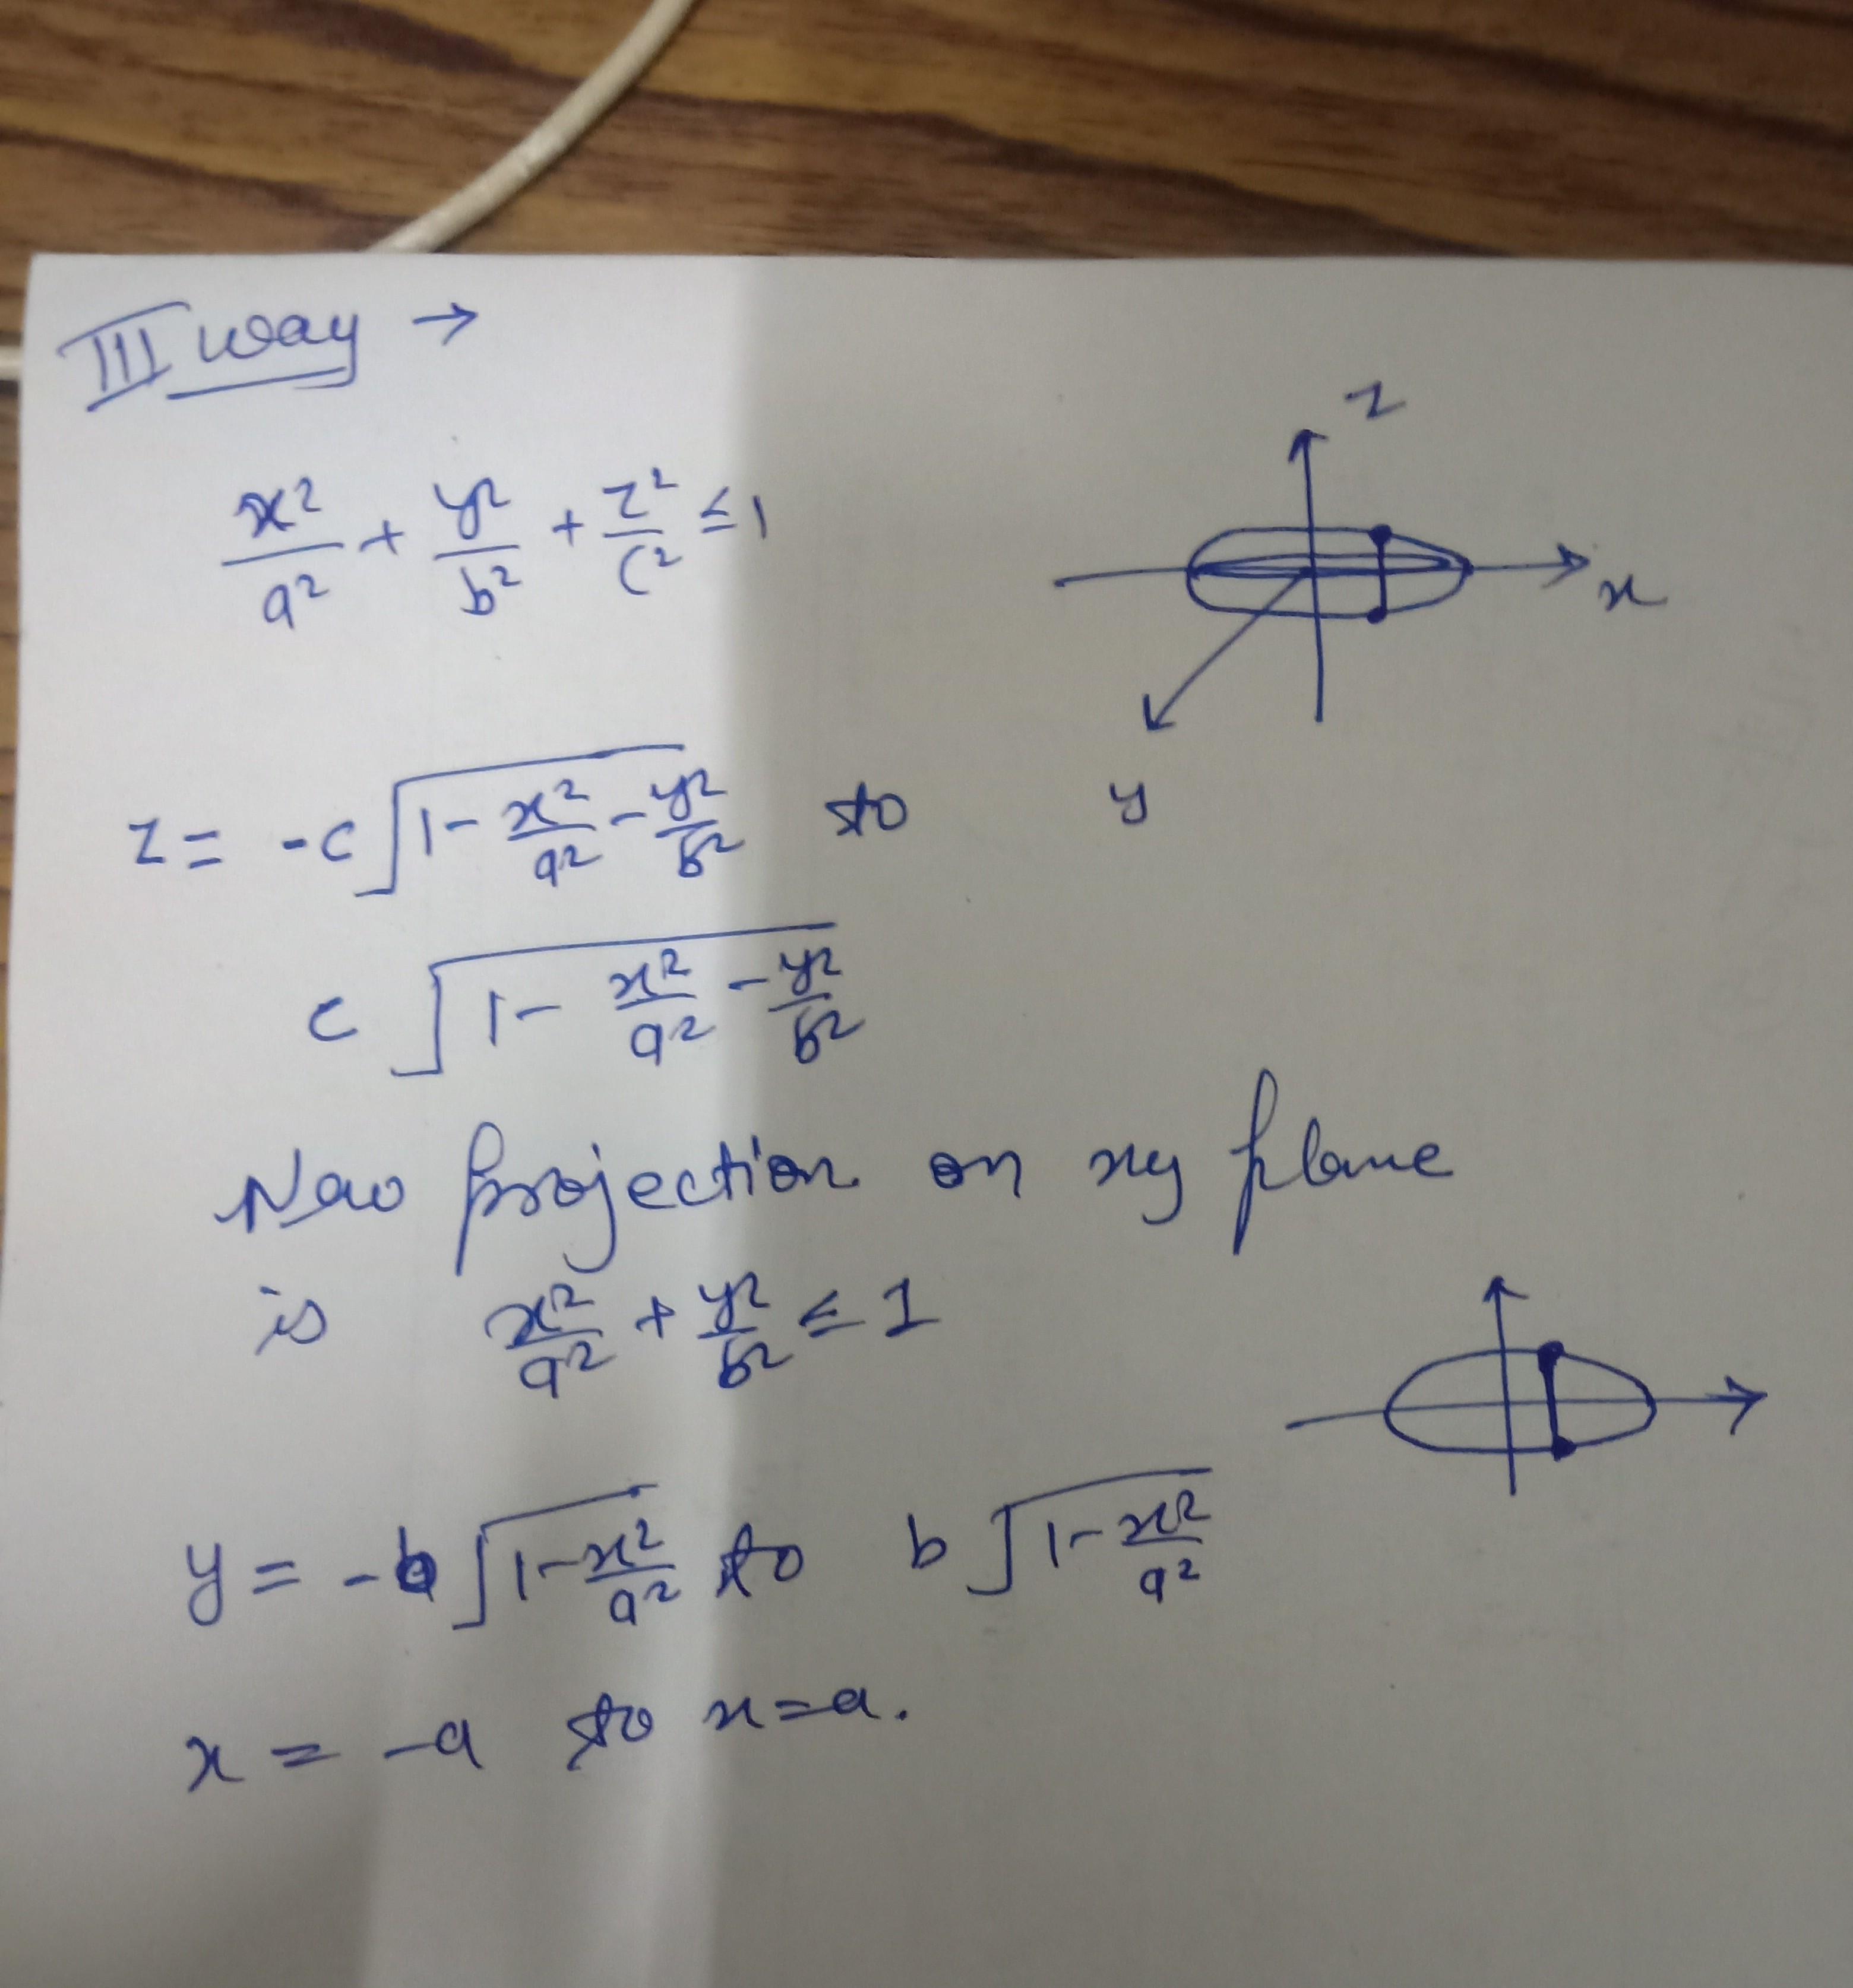 III way →
x²/a² + y²/b² + z²/c² ≤ 1
z
x
y
z = -c√(1 - x²/a² - y²/b²) to
c√(1 - x²/a² - y²/b²)
Now projection on xy plane
is x²/a² + y²/b² ≤ 1
y = -b√(1 - x²/a²) to b√(1 - x²/a²)
x = -a to x = a.